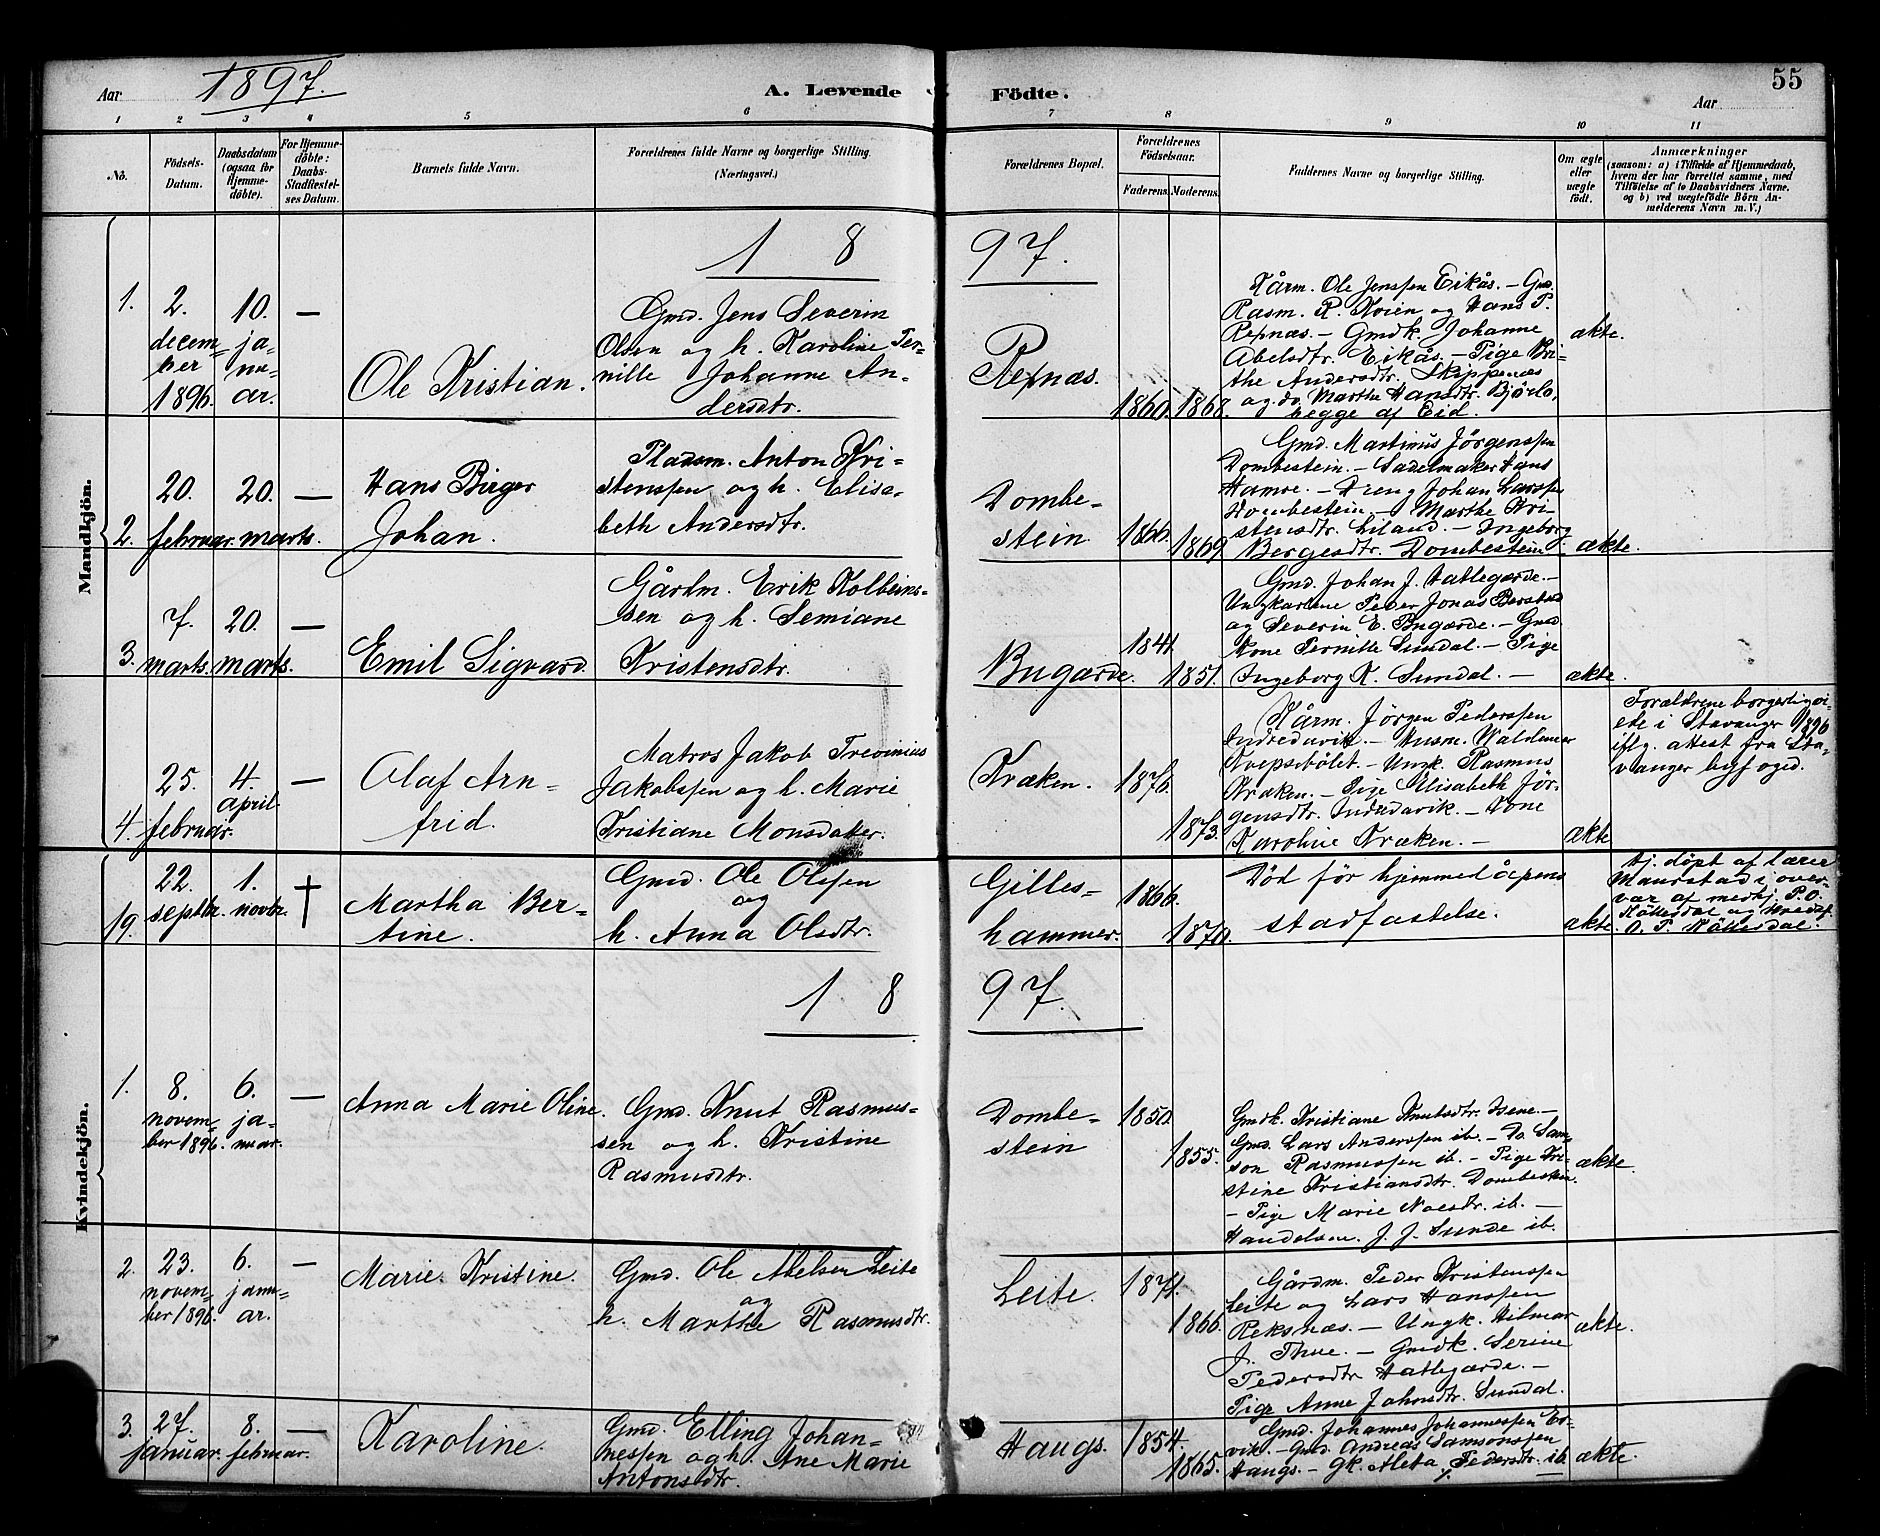 Aar 1897.
A. Levende Födte.
Aar
55
1 2 3 4 5 6 7 8 9 10 11
No.
Födsels-
Datum.
Daabsdatum
(ogsaa for
Hjemme-
döbte).
For Hjemme-
döbte:
Daabs-
Stadfæstel-
ses Datum.
Barnets fulde Navn.
Forældrenes fulde Navne og borgerlige Stilling.
(Næringsvei.)
Forældrenes Bopæl.
Forældrenes
Födselsaar.
Faderens. Moderens.
Faddernes Navne og borgerlige Stilling.
Om ægte
eller
uægte
født.
Anmærkninger
(saasom: a) i Tilfælde af Hjemmedaab,
hvem der har forrettet samme, med
Tilföielse af to Daabsvidners Navne,
og b) ved uægtefödte Börn An-
melderens Navn m. V.)
Mandkjön.
1897.
1.
2.
decem-
ber
1896.
10.
ja-
nu-
ar.
—
Ole Kristian.
Gmd. Jens Severin
Olsen og h. Karoline Per-
nille Johanne An-
dersdtr.
Rexnæs.
1860. 1868.
Kårm. Ole Jenssen Eikås. — Gmd.
Rasm. R. Koien og Hans P.
Rexnæs. — Gmdk. Johanne
Abelsdtr. Eikås. — Pige Bri-
the Andersdtr. Skippenæs
og do. Marthe Hansdtr. Bjørlo,
begge af Eid.
ækte.
2.
20.
februar.
20.
marts.
—
Hans Birger
Johan.
Pladsm. Anton Kri-
stenssen og h. Elisa-
beth Andersdtr.
Dombe-
stein
1866.
1869
Gmd. Martinus Jörgenssen
Dombestein. — Sadelmaker Hans
Hamre. — Dreng Johan Larssen
Dombestein. — Marthe Kri-
stensdtr. Liland. — Ingeborg
Bergesdtr. Dombestein
ækte.
3.
7.
marts.
20.
marts.
—
Emil Sigvard
Gårdm. Erik Kolbeins-
sen og h. Semiane
Kristensdtr.
Bugærde.
1841
1851.
Gmd. Johan J. Hatlegærde. —
Ungkarlene Peder Jonas Berstad
og Severin E. Bugærde. — Gmd.
Kone Pernille Sundal. — Pige
Ingeborg K. Sundal. —
ækte.
4.
25.
februar.
4.
april.
—
Olaf Arn-
frid.
Matros Jakob Trevinius
Jakobssen og h. Marie
Kristiane Monsdatter.
Kræken.
1876.
1873.
Kårm. Jörgen Pederssen
Indredavik. — Husm. Waldemar
Kvepsebölet. — Ungk. Rasmus
Kræken. — Pige Elisabeth Jör-
gensdtr. Indredavik. — Kone
Karoline Kræken. —
ækte
Forældrene borgerlig vi-
ede i Stavanger
iflg. attest fra Sta-
vanger byfoged.
19.
22.
septbr.
1.
novbr.
†
Martha Ber-
tine.
Gmd. Ole Olssen
og
h. Anna Olsdtr.
Gilles-
hammer.
1866.
1870.
Död för hjemmedåpens
stadfæstelse.
ækte.
hj. döpt af lærer
Maurstad i over-
vær af medhj. P. O.
Nöttesdal og
O. P. Nöttesdal.
Kvindekjön.
1897.
1.
8.
novem-
ber 1896.
6.
ja-
nuar.
—
Anna Marie Oline.
Gmd. Knut Rasmus-
sen og h. Kristine
Rasmusdtr.
Dombe-
stein
1850.
1855.
Gmdk. Kristiane Knutsdtr. Isene. —
Gmd. Lars Anderssen ib. — Do. Sam-
son Rasmussen ib. — Pige Kri-
stine Kristiansdtr. Dombestein.
— Pige Marie Noesdtr. ib. —
Handelsm. J. J. Sunde ib.
ækte.
2.
23.
novem-
ber 1896.
6.
janu-
ar.
—
Marie Kristine.
Gmd. Ole Abelsen Leite
og
h. Marthe Rasmusdtr.
Leite.
1871.
1866.
Gårdm. Peder Kristenssen
Leite og Lars Hanssen
Reksnæs. — Ungk. Hilmar
J. Thue. — Gmdk. Serine
Pedersdtr Hatlegærde. —
Pige Anne Johnsdtr. Sundal.
ækte.
3.
27.
januar.
8.
februar.
—
Karoline.
Gmd. Elling Johan-
nessen og h. Ane Marie
Antonsdtr.
Haugs.
1854.
1865.
Gmd. Johannes Johannessen Er-
vik. — Gmd. Andreas Samsonssen
Haugs. — Gk. Aleta Pedersdtr. ib.
ækte.